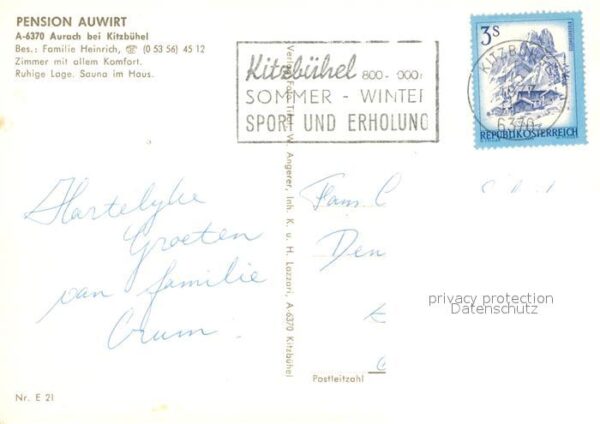 PENSION AUWIRT
A-6370 Aurach bei Kitzbühel
Bes.: Familie Heinrich, ☎ (0 53 56) 45 12
Zimmer mit allem Komfort.
Ruhige Lage. Sauna im Haus.
Kitzbühel 800 -
SOMMER - WINTER
SPORT UND ERHOLUNG
3s
KITZBÜHEL
6370
REPUBLIK ÖSTERREICH
Hartelyke
Groeten
van familie
Verlag Foto Tirol W. Angerer, Inh. K. u. H. Lazzari, A-6370 Kitzbühel
Fam.
Den
privacy protection
Datenschutz
Postleitzahl
Nr. E 21